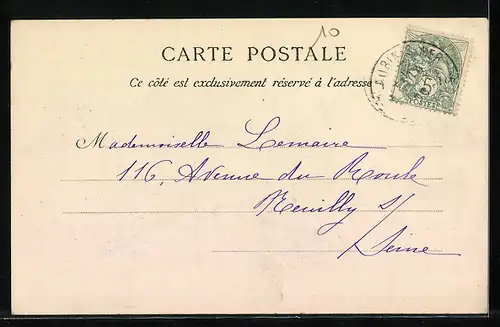 10
CARTE POSTALE
Ce côté est exclusivement réservé à l'adresse
5
POSTES
Mademoiselle Lemaire
116, Avenue du Roule
Neuilly s/
Seine